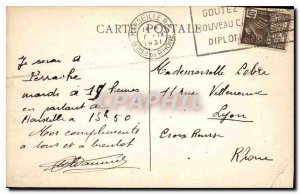 MARSEILLE
1931
GOUTEZ
NOUVEAU
DIPLO
CARTE POSTALE
Je serai à
Perrache
mardi à 19 heures
en partant de
Marseille à 13 h 50
Mes compliments
à tous et à bientôt
Mademoiselle Lebre
11 rue Villeneuve
Lyon
Croix Rousse
Rhône